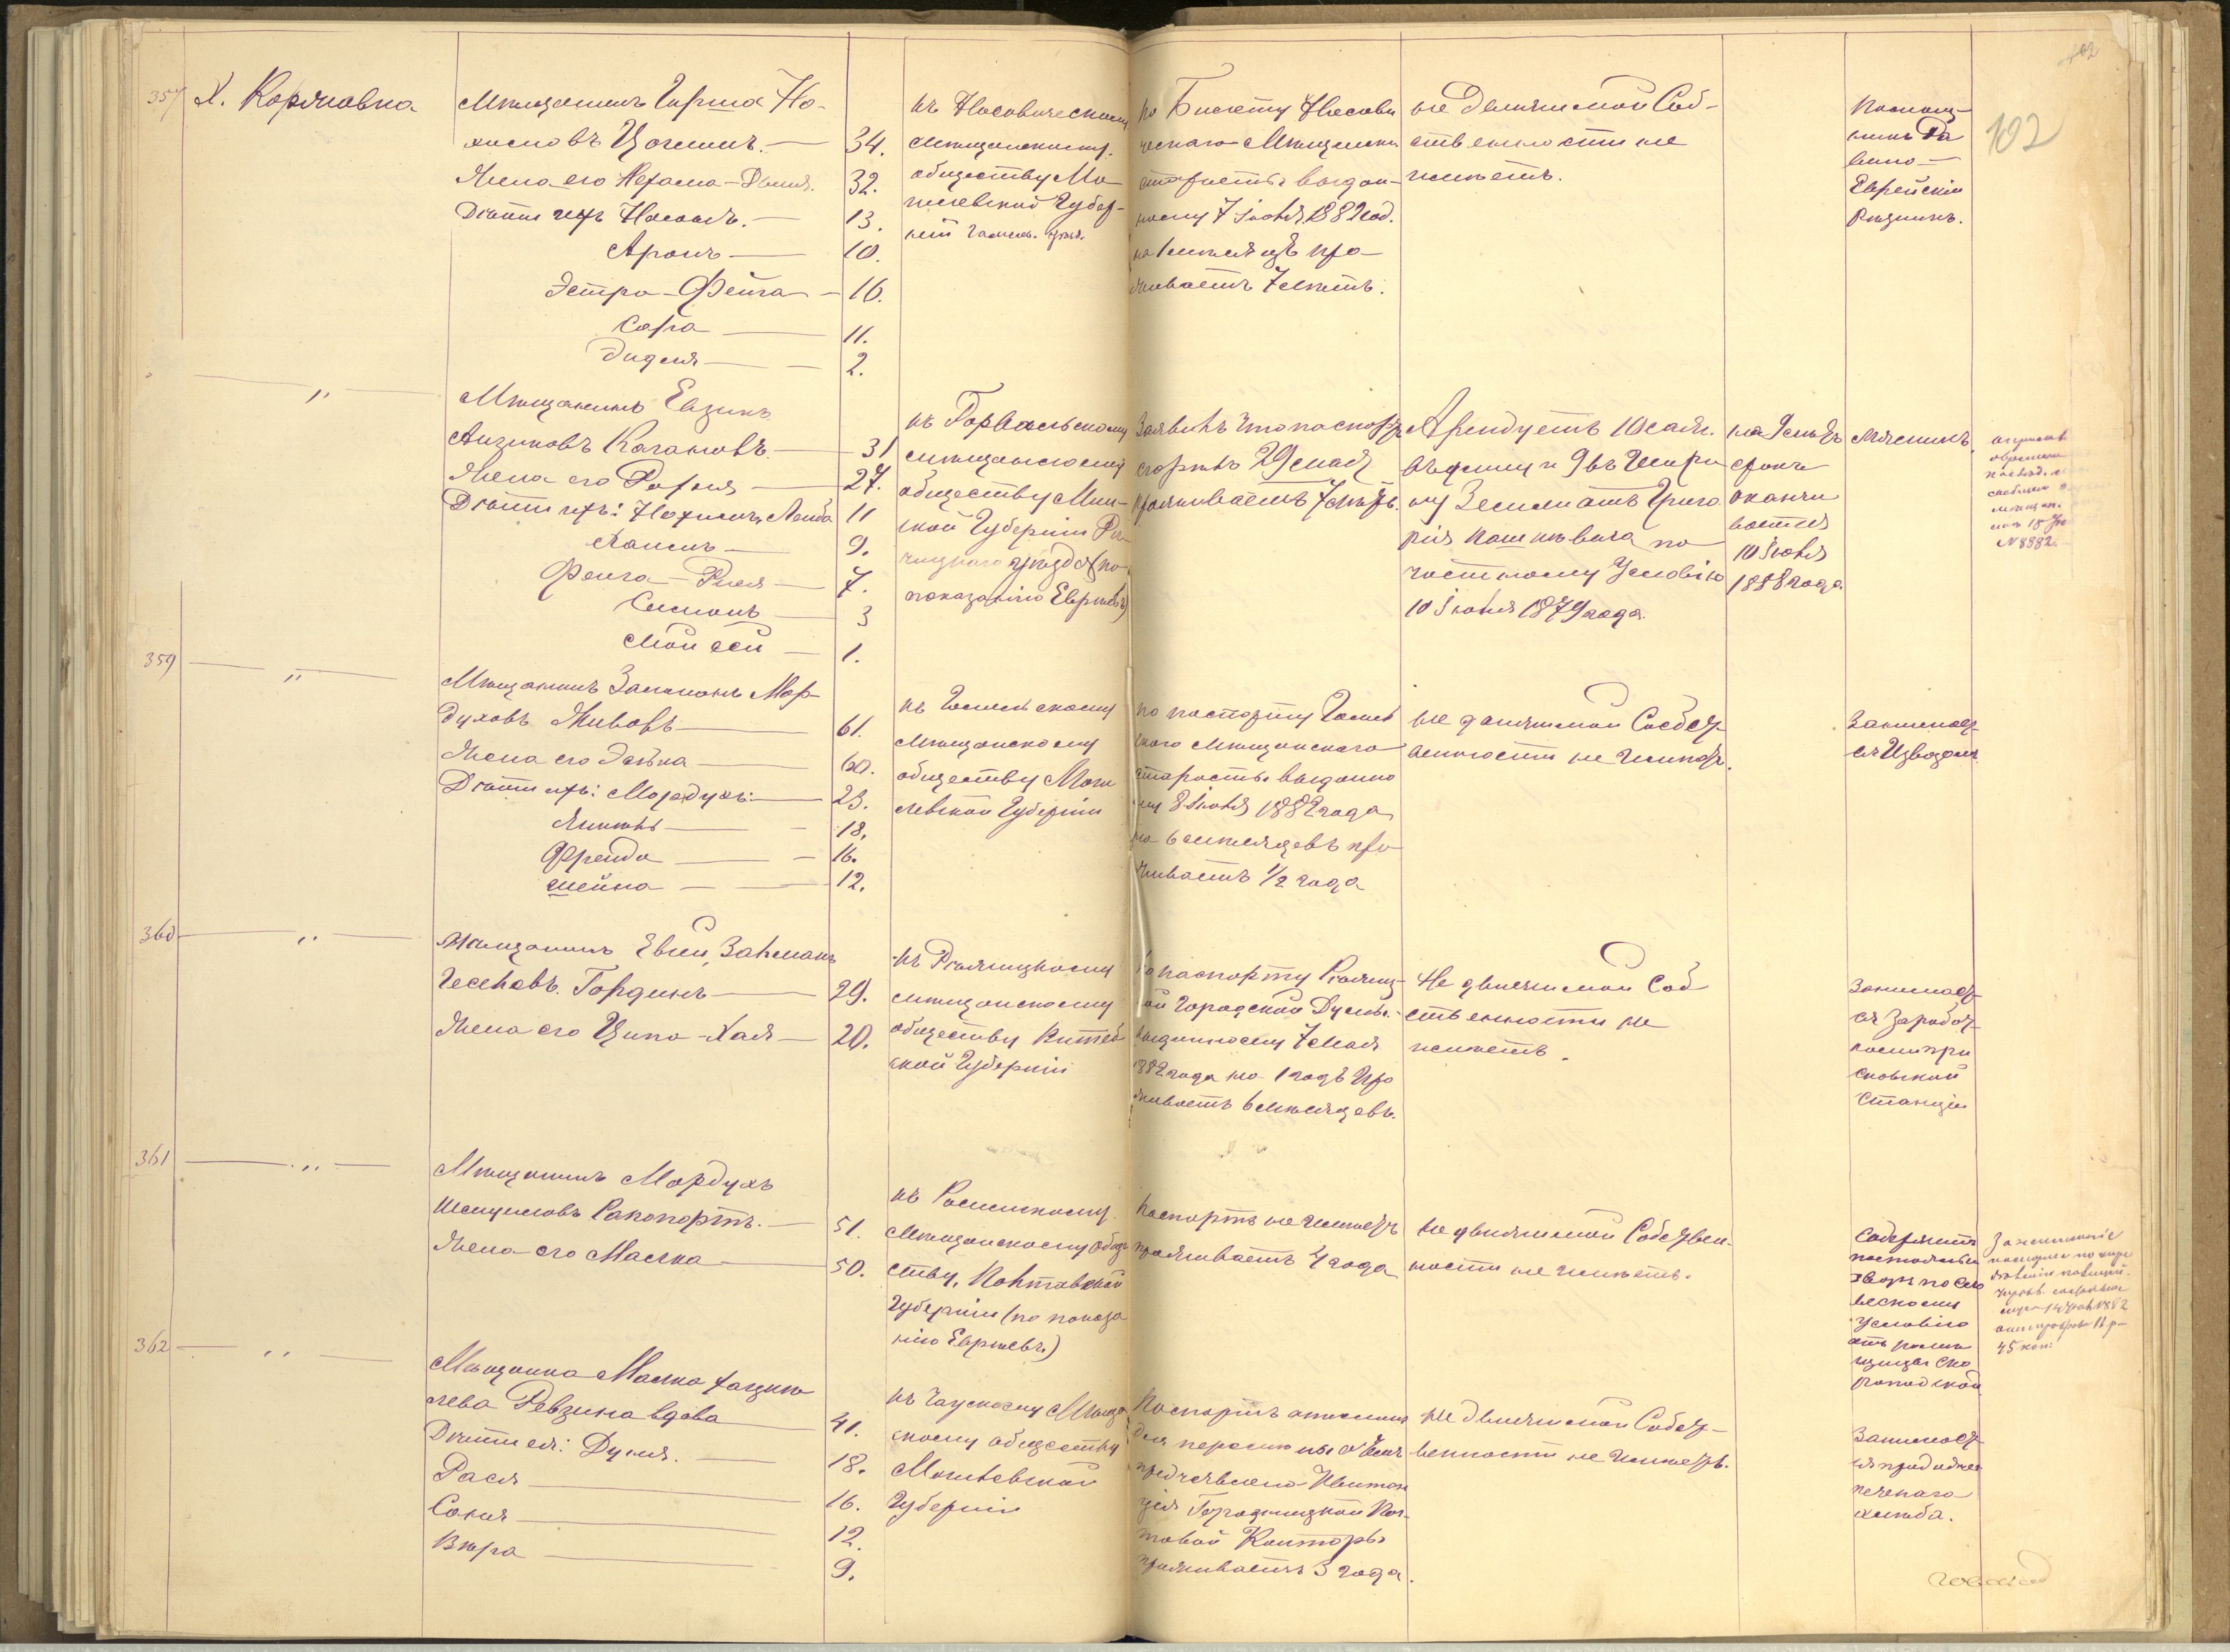 102
102
357 Х. Корюковка
Мѣщанинъ Гирша На-
химовъ Цоглинъ. — 34.
Жена его Нехама-Двыня. 32.
Дѣти ихъ Насонъ. — 13.
Аронъ — 10.
Эстра-Фейга — 16.
Сара — 11.
2.
къ Носовическому
мѣщанскому
обществу Мо-
гилевской Губер-
ніи Гомель. уѣзд.
по Билету Носови
ческаго Мѣщанска
старосты выдан-
ному 7 Іюня 882 год.
на 1 мѣсяцъ про-
живаетъ 7 лѣтъ.
не движимой Соб-
ственности не
имѣетъ.
Помощ-
никъ Ра
вина —
Еврейскій
Рѣзникъ.
— " —
Мѣщанинъ Евзикъ
Айзиковъ Кагановъ — 31
Жена его Рохля — 27.
Дѣти ихъ: Нохимъ, Лейба 11
Хаимъ — 9.
Фейга-Рися — 7.
Симонъ — 3
Мойсей — 1.
къ Горвальскому
мѣщанскому
обществу Мин-
ской Губерніи Рѣ-
чицкаго уѣзда (по
показанію Евреевъ)
Заявилъ что паспортъ
сгорѣлъ 29 мая
проживаетъ 7 лѣтъ.
Арендуетъ 10 саж.
въ длину и 9 въ Шири
ну Земли отъ Григо
рія Пашкевича по
частному Условію
10 Іюня 1879 года.
на 9 лѣтъ
срокъ
оканчи
вается
10 Іюня
1888 года
Мясникъ
N 8882.
359 — " —
Мѣщанинъ Залманъ Мор-
духовъ Живовъ — 61.
Жена его — 60.
Дѣти ихъ: Мордухъ — 23.
18.
Фрейда — 16.
Шейна — 12.
къ Гомельскому
мѣщанскому
обществу Моги
левской Губерніи
по паспорту Гомел
скаго мѣщанскаго
старосты выданно
му 8 Іюня 1882 года
на 6 мѣсяцевъ про
живаетъ 1/2 года
не движимой Собст-
венности не имѣетъ.
Занимает-
ся Извозомъ
360 — " —
Мѣщанинъ Евсей Залманъ
Гесселевъ Гординъ — 29.
Жена его Ципа-Хая — 20.
къ Рѣжицкому
мѣщанскому
обществу Витеб
ской Губерніи
По паспорту Рѣжиц-
ой Городской Думы.
выданному 7 Мая
882 года на 1 годъ про
живаетъ 6 мѣсяцевъ.
Не движимой Соб
ственности не
имѣетъ.
Занимает-
ся Заработ-
ками при
Сновской
Станціи
361 — " —
Мѣщанинъ Мордухъ
Шмуиловъ Рапопортъ. — 51.
Жена его Малка — 50.
къ Роменскому
Мѣщанскому общ
ству, Полтавской
Губерніи (по показа
нію Евреевъ.)
Паспорта не имѣетъ
проживаетъ 4 года
не движимой Собствен-
ности не имѣетъ.
Содержитъ
постоялый
дворъ по сло
весному
Условію
отъ
Ско
ропадской
45 коп.
362 — " —
Мѣщанка Малка
Ревзина вдова 41.
Дѣти ея: Дуня. — 18.
Рася — 16.
Соня — 12.
Вѣра — 9.
къ Чаускому Мѣщан
скому обществу
Могилевской
Губерніи
Паспортъ отослан
для перемѣны о чемъ
предъявлена Квитан
ція Городницкой Поч-
товой Конторы
проживаетъ 3 года.
не движимой Собст-
венности не имѣетъ.
Занимает-
ся продажею
печенаго
хлѣба.